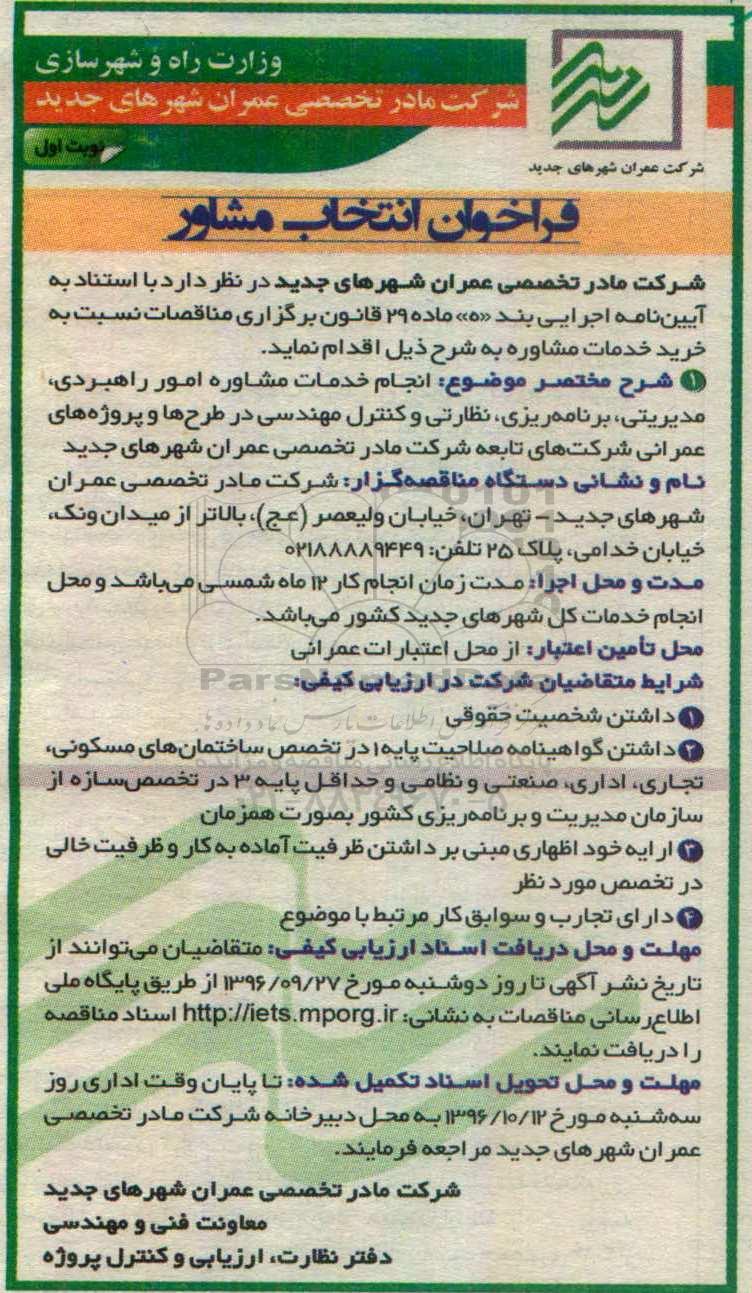 وزارت راه و شهرسازی
شرکت مادر تخصصی عمران شهرهای جدید
نوبت اول
شرکت عمران شهرهای جدید
فراخوان انتخاب مشاور
شرکت مادر تخصصی عمران شهرهای جدید در نظر دارد با استناد به
آیین‌نامه اجرایی بند «ه» ماده ۲۹ قانون برگزاری مناقصات نسبت به
خرید خدمات مشاوره به شرح ذیل اقدام نماید.
۱ شرح مختصر موضوع: انجام خدمات مشاوره امور راهبردی،
مدیریتی، برنامه‌ریزی، نظارتی و کنترل مهندسی در طرح‌ها و پروژه‌های
عمرانی شرکت‌های تابعه شرکت مادر تخصصی عمران شهرهای جدید
نام و نشانی دستگاه مناقصه‌گزار: شرکت مادر تخصصی عمران
شهرهای جدید – تهران، خیابان ولیعصر (عج)، بالاتر از میدان ونک،
خیابان خدامی، پلاک ۲۵ تلفن: ۰۲۱۸۸۸۸۹۴۴۹
مدت و محل اجرا: مدت زمان انجام کار ۱۲ ماه شمسی می‌باشد و محل
انجام خدمات کل شهرهای جدید کشور می‌باشد.
محل تأمین اعتبار: از محل اعتبارات عمرانی
شرایط متقاضیان شرکت در ارزیابی کیفی:
۱ داشتن شخصیت حقوقی
۲ داشتن گواهینامه صلاحیت پایه ۱ در تخصص ساختمان‌های مسکونی،
تجاری، اداری، صنعتی و نظامی و حداقل پایه ۳ در تخصص سازه از
سازمان مدیریت و برنامه‌ریزی کشور بصورت همزمان
۳ ارایه خود اظهاری مبنی بر داشتن ظرفیت آماده به کار و ظرفیت خالی
در تخصص مورد نظر
۴ دارای تجارب و سوابق کار مرتبط با موضوع
مهلت و محل دریافت اسناد ارزیابی کیفی: متقاضیان می‌توانند از
تاریخ نشر آگهی تا روز دوشنبه مورخ ۱۳۹۶/۰۹/۲۷ از طریق پایگاه ملی
اطلاع‌رسانی مناقصات به نشانی: http://iets.mporg.ir اسناد مناقصه
را دریافت نمایند.
مهلت و محل تحویل اسناد تکمیل شده: تا پایان وقت اداری روز
سه‌شنبه مورخ ۱۳۹۶/۱۰/۱۲ به محل دبیرخانه شرکت مادر تخصصی
عمران شهرهای جدید مراجعه فرمایند.
شرکت مادر تخصصی عمران شهرهای جدید
معاونت فنی و مهندسی
دفتر نظارت، ارزیابی و کنترل پروژه